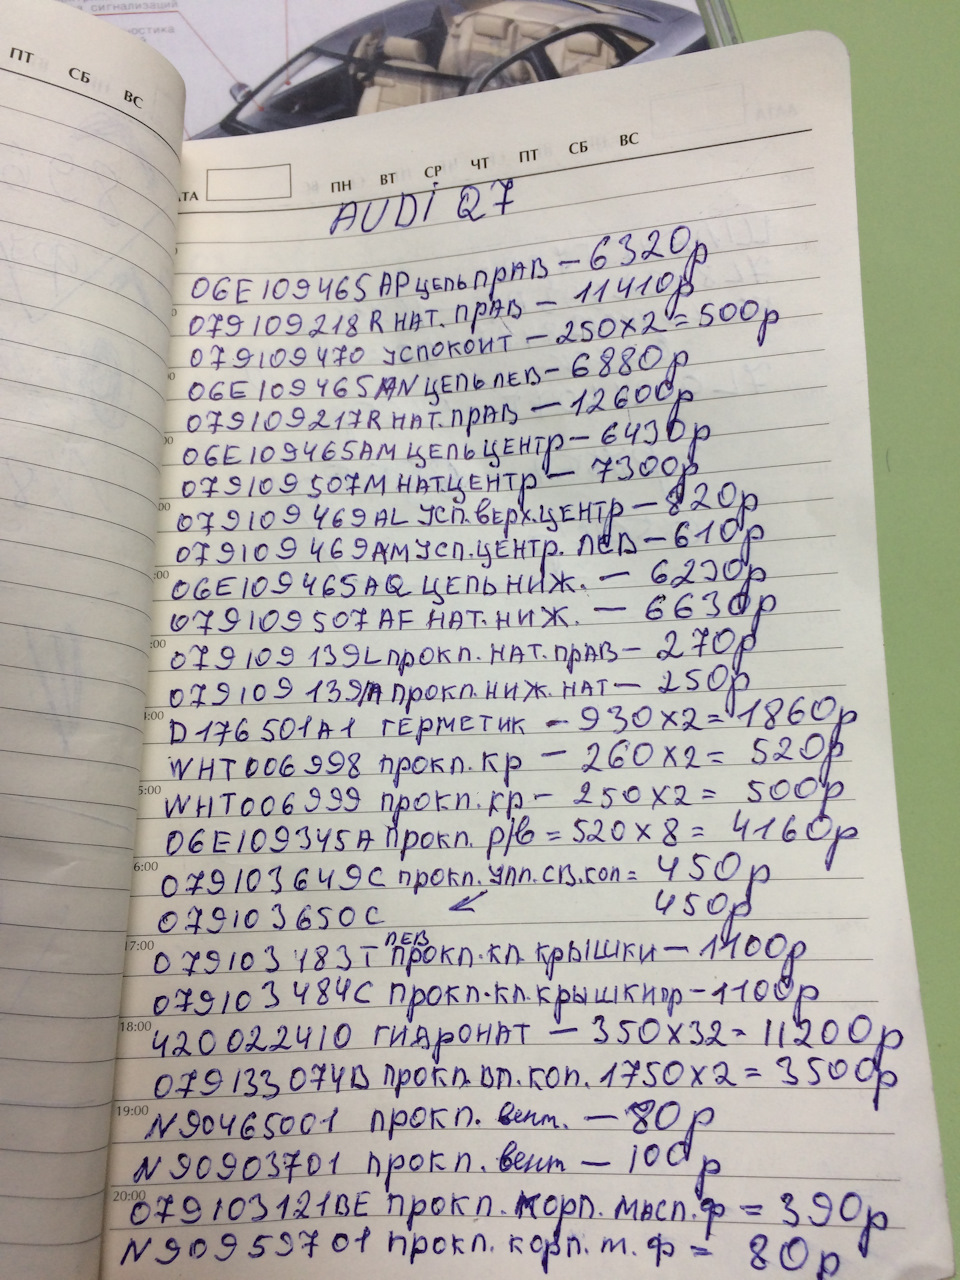 я сигнализаций
ностика
ПТ СБ ВС
АТА ПН ВТ СР ЧТ ПТ СБ ВС
AUDi Q7
06E109465AP ЦЕПЬ ПРАВ – 6320р
079109218R НАТ. ПРАВ – 11410р
079109470 УСПОКОИТ – 250×2=500р
06E109465AN ЦЕПЬ ЛЕВ – 6880р
079109217R НАТ. ПРАВ – 12600р
06E109465AM ЦЕПЬ ЦЕНТР – 6430р
079109507M НАТ.ЦЕНТР – 7300р
079109469AL УСП.ВЕРХ.ЦЕНТР – 820р
079109469AM УСП.ЦЕНТР. ЛЕВ – 610р
06E109465AQ ЦЕПЬ НИЖ. – 6230р
079109507AF НАТ. НИЖ. – 6630р
079109139L прокл. НАТ. ПРАВ – 270р
079109139A прокл. НИЖ. НАТ – 250р
D176501A1 ГЕРМЕТИК – 930×2=1860р
WHT006998 прокл. кр – 260×2= 520р
WHT006999 прокл. кр – 250×2= 500р
06E109345A прокл. р/в = 520×8= 4160р
16:00
079103649C прокл. упл. св. кол = 450р
079103650C ↙ 450р
17:00
ЛЕВ
079103483T прокл. кл. крышки – 1100р
079103484C прокл. кл. крышки пр – 1100р
18:00
420022410 ГИДРОНАТ – 350×32=11200р
079133074B прокл. вп. кол. 1750×2= 3500р
19:00
N90465001 прокл. вент. – 80р
N90903701 прокл. вент – 100р
20:00
079103121BE прокл. корп. масл. ф = 390р
N90959701 прокл. корп. м. ф = 80р